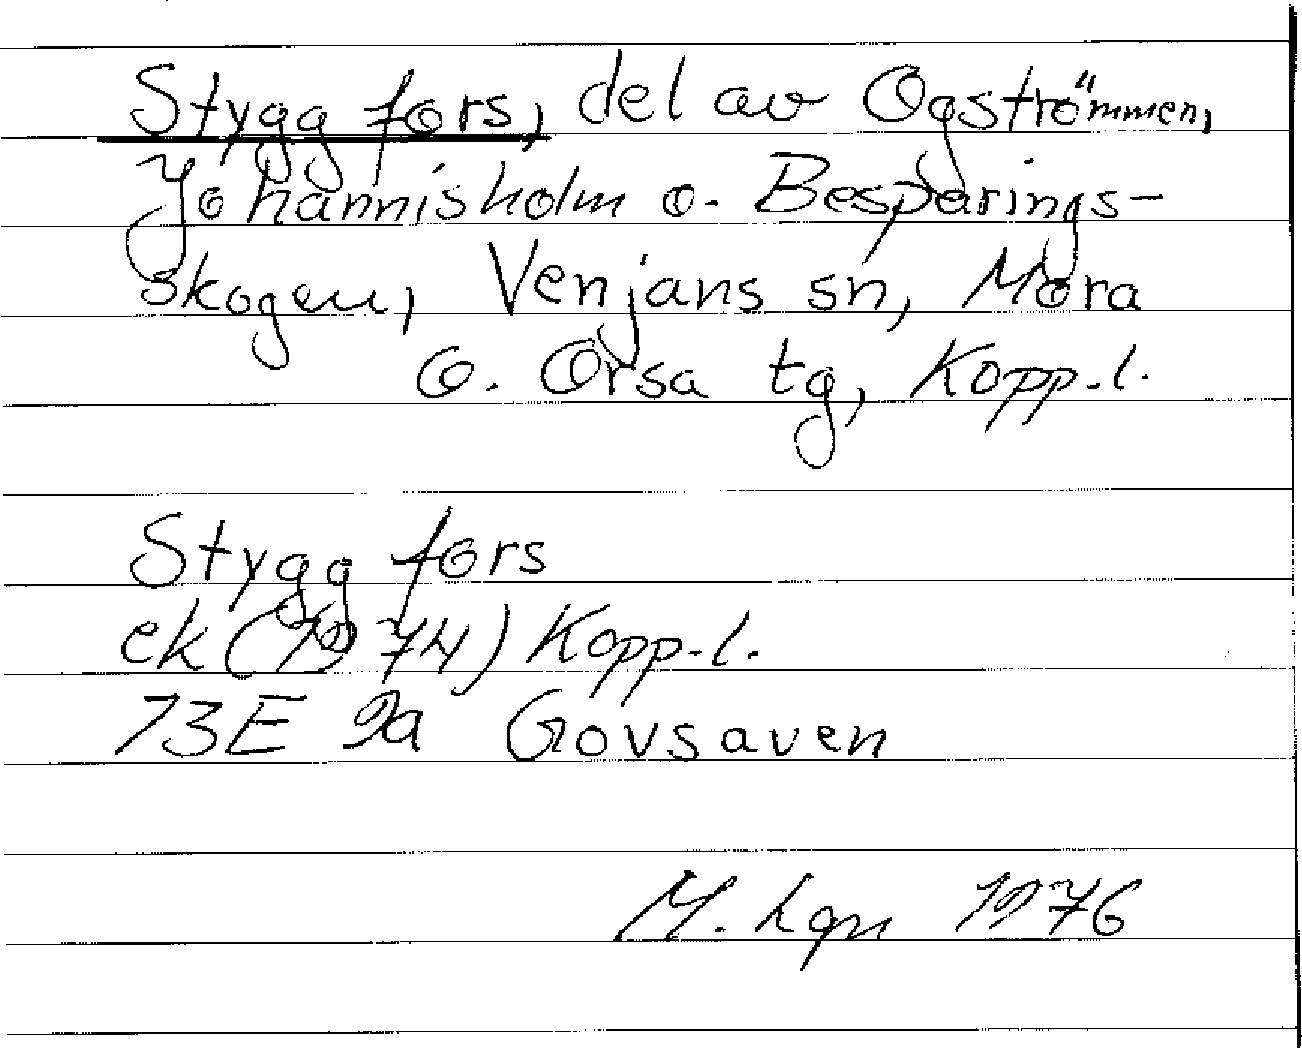 Styggfors, del av Ogströmmen,
Johannisholm o. Besparings-
skogen, Venjans sn, Mora
o. Orsa tg, Kopp.l.
Styggfors
ek (1974) Kopp.l.
13E 9a Govsaven
M. Lgn 1976